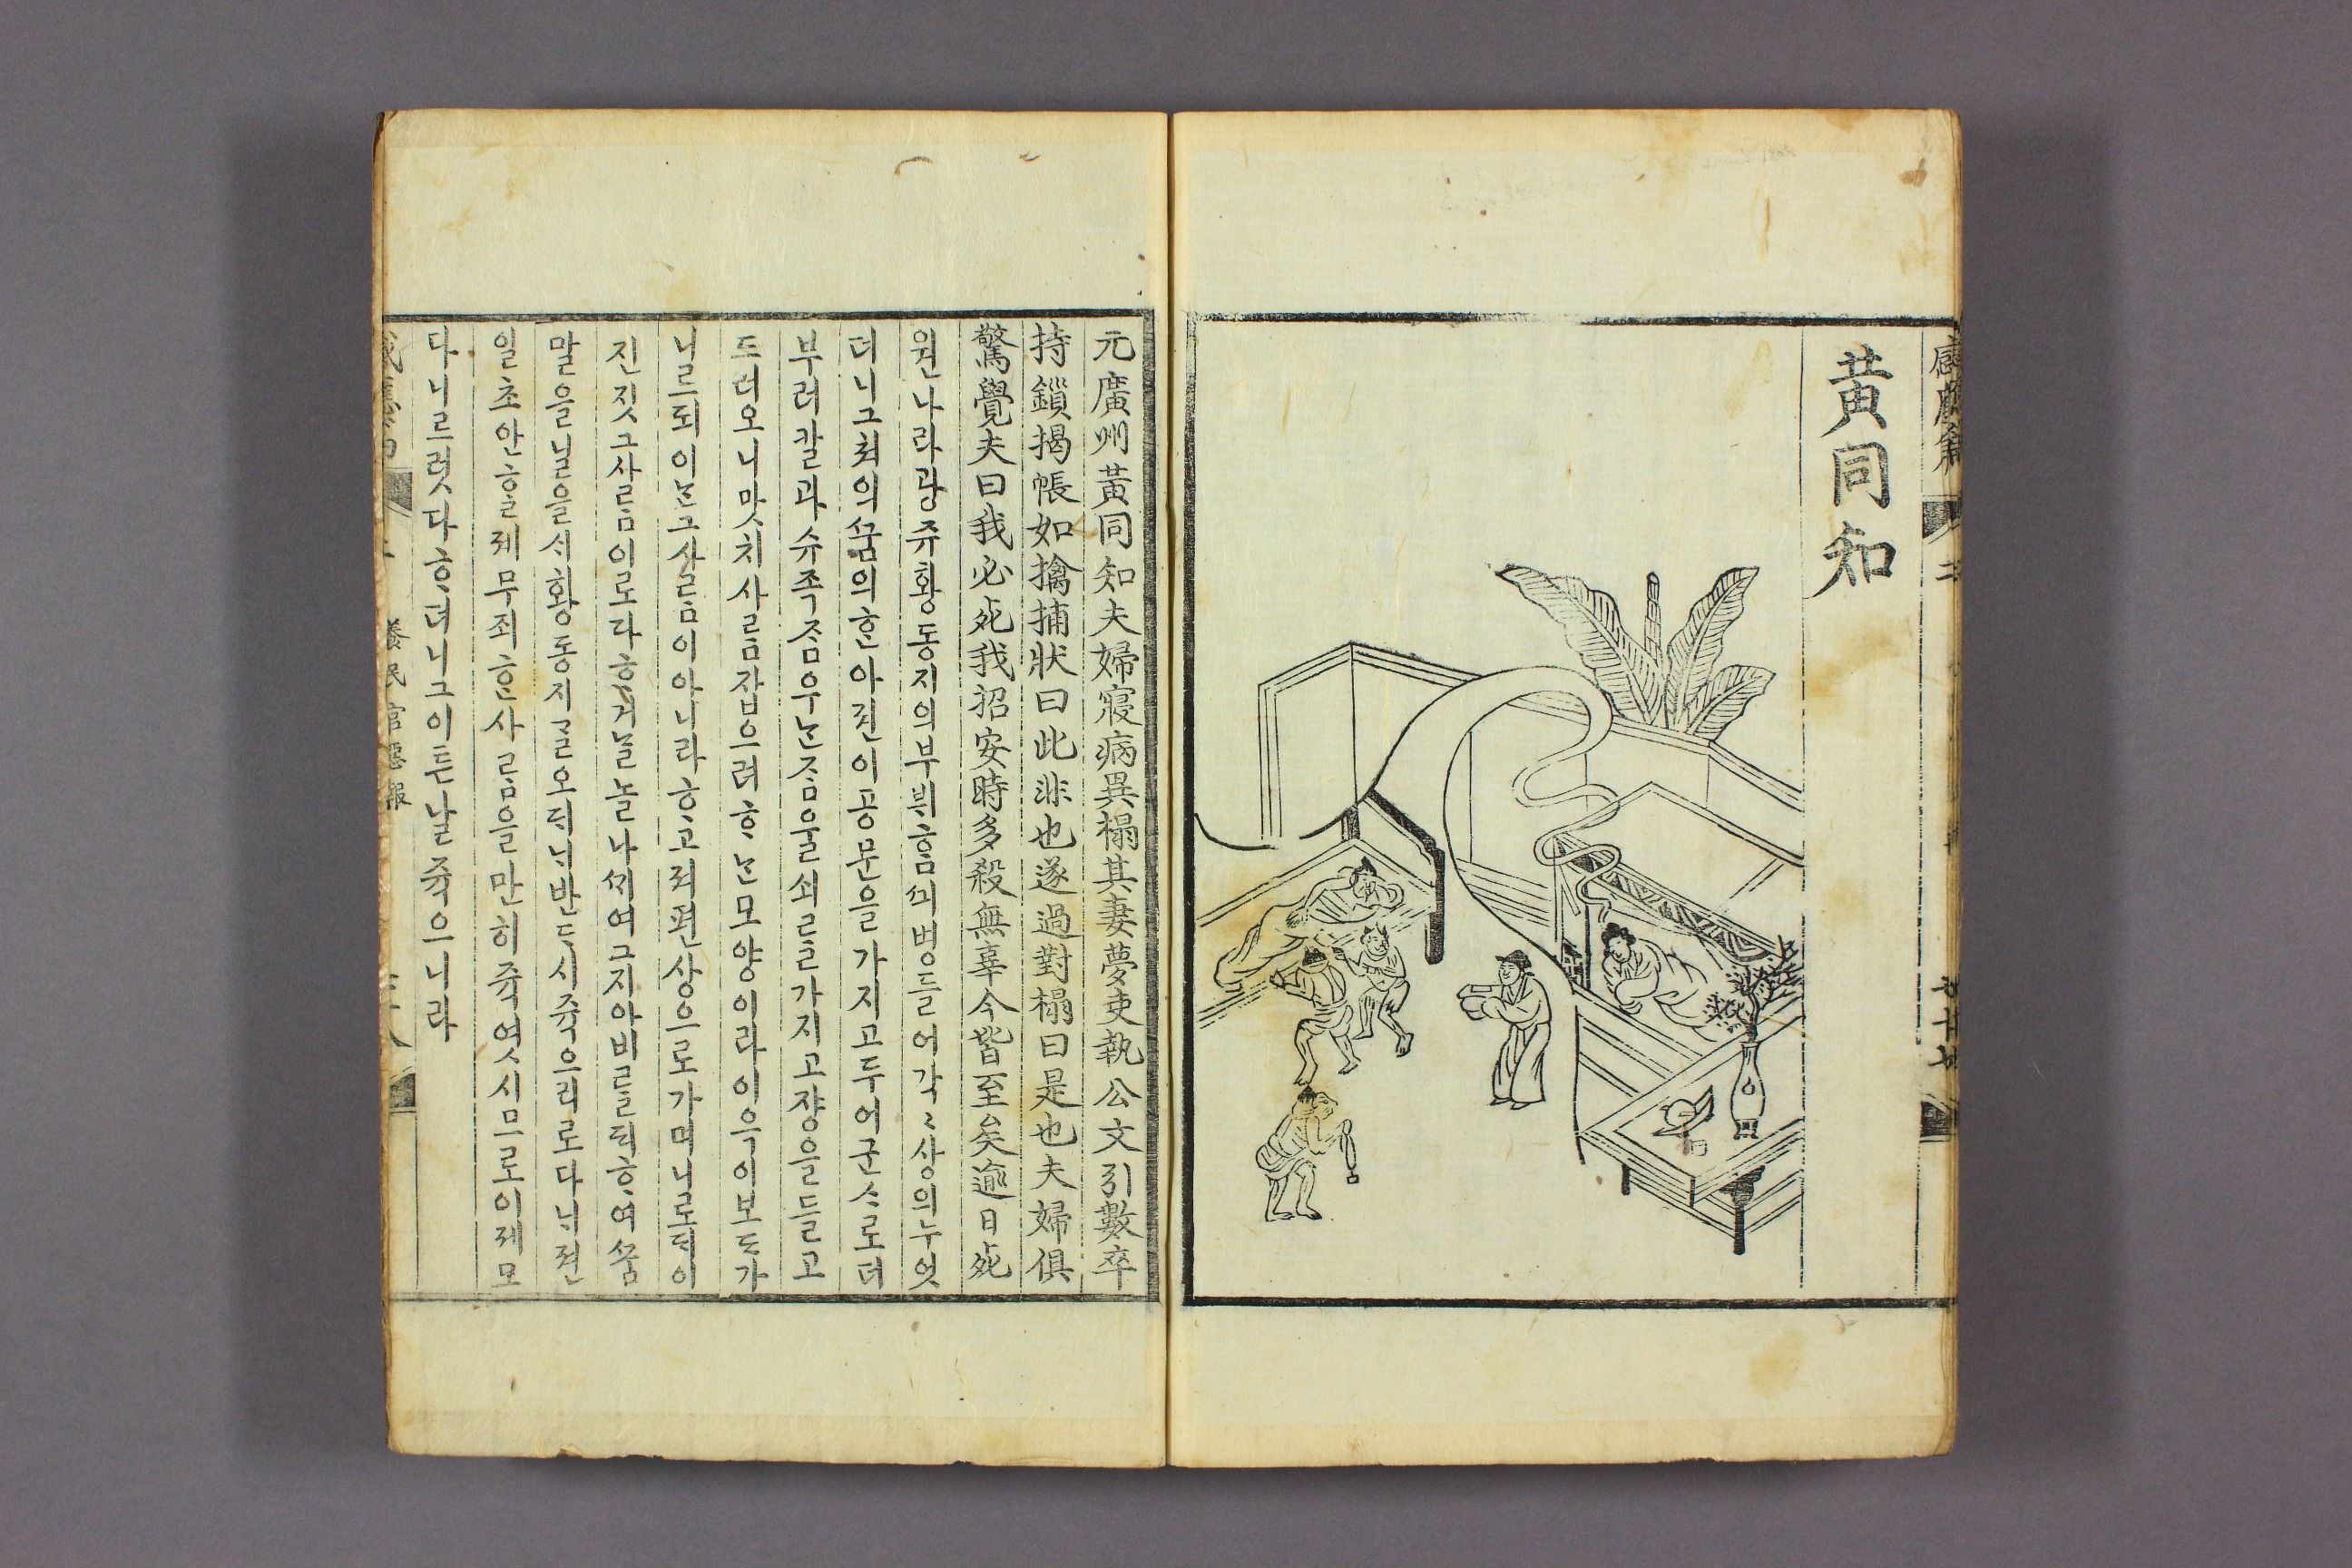 黃同知
元廣州黃同知夫婦寢病異榻其妻夢吏執公文引數卒
持鎖揭帳如擒捕狀曰此非也遂過對榻曰是也夫婦俱
驚覺夫曰我必死我招安時多殺無辜今皆至矣逾日死
원나라광쥬황동지의부쳐ᄒᆞᆷᄭᅴ병들어각〻상의누엇
더니그쳐의ᄭᅮᆷ의ᄒᆞᆫ아젼이공문을가지고두어군ᄉᆞ로더
부러칼과슈족ᄌᆞᆷ우ᄂᆞᆫᄌᆞᆷ울쇠ᄅᆞᆯ가지고쟝을들고
드러오니맛치사ᄅᆞᆷ잡으려ᄒᆞᄂᆞᆫ모양이라이윽이보도가
닐ᄅᆞ되이ᄂᆞᆫ그사ᄅᆞᆷ이아니라ᄒᆞ고져편상으로가며니ᄅᆞ되이
진짓그사ᄅᆞᆷ이로라ᄒᆞ거ᄂᆞᆯ놀나ᄭᆡ여그지아비ᄅᆞᆯᄃᆡᄒᆞ여ᄭᅮᆷ
말을닐을ᄉᆡ황동지ᄀᆞᆯ오ᄃᆡᄂᆡ반ᄃᆞ시죽으리로다ᄂᆡ젼
일초안ᄒᆞᆯ제무죄ᄒᆞᆫ사ᄅᆞᆷ을만히죽엿시ᄆᆞ로이제모
다니르럿다ᄒᆞ더니그이튼날죽으니라
養民官惡報